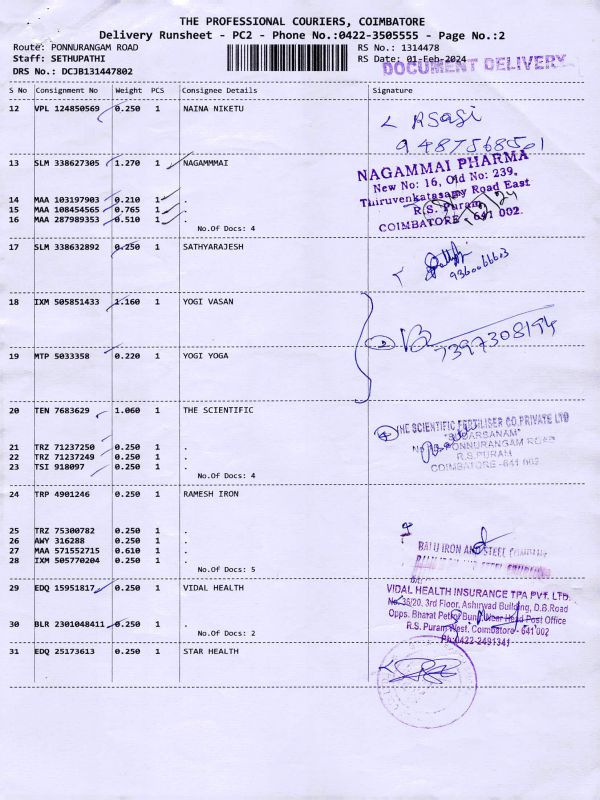 THE PROFESSIONAL COURIERS, COIMBATORE
Delivery Runsheet - PC2 - Phone No.:0422-3505555 - Page No.:2
Route: PONNURANGAM ROAD
Staff: SETHUPATHI
DRS No.: DCJB131447802
RS No.: 1314478
RS Date: 01-Feb-2024
DOCUMENT DELIVERY
S No Consignment No Weight PCS Consignee Details Signature
12 VPL 124850569 0.250 1 NAINA NIKETU
RSagi
9487568501
13 SLM 338627305 1.270 1 NAGAMMMAI
14 MAA 103197903 0.210 1 .
15 MAA 108454565 0.765 1 .
16 MAA 287989353 0.510 1 .
No.Of Docs: 4
NAGAMMAI PHARMA
New No: 16, Old No: 239,
Thiruvenkatasamy Road East
R.S. Puram,
COIMBATORE - 641 002.
17 SLM 338632892 0.250 1 SATHYARAJESH
9360066603
18 IXM 505851433 1.160 1 YOGI VASAN
2
7397308194
19 MTP 5033358 0.220 1 YOGI YOGA
20 TEN 7683629 1.060 1 THE SCIENTIFIC
21 TRZ 71237250 0.250 1 .
22 TRZ 71237249 0.250 1 .
23 TSI 918097 0.250 1 .
No.Of Docs: 4
4
THE SCIENTIFIC FERTILISER CO.PRIVATE LTD
PONNURANGAM ROAD
R.S.PURAM
COIMBATORE - 641 002
24 TRP 4901246 0.250 1 RAMESH IRON
25 TRZ 75300782 0.250 1 .
26 AWY 316288 0.250 1 .
27 MAA 571552715 0.610 1 .
28 IXM 505770204 0.250 1 .
No.Of Docs: 5
BALU IRON AND STEEL COMPANY
29 EDQ 15951817 0.250 1 VIDAL HEALTH
30 BLR 2301048411 0.250 1 .
No.Of Docs: 2
VIDAL HEALTH INSURANCE TPA PVT. LTD.
No.36/20, 3rd Floor, Ashirwad Building, D.B.Road
Opps. Bharat Petrol Bunk, Near Head Post Office
R.S. Puram West, Coimbatore - 641 002
Ph:0422-2491341
31 EDQ 25173613 0.250 1 STAR HEALTH